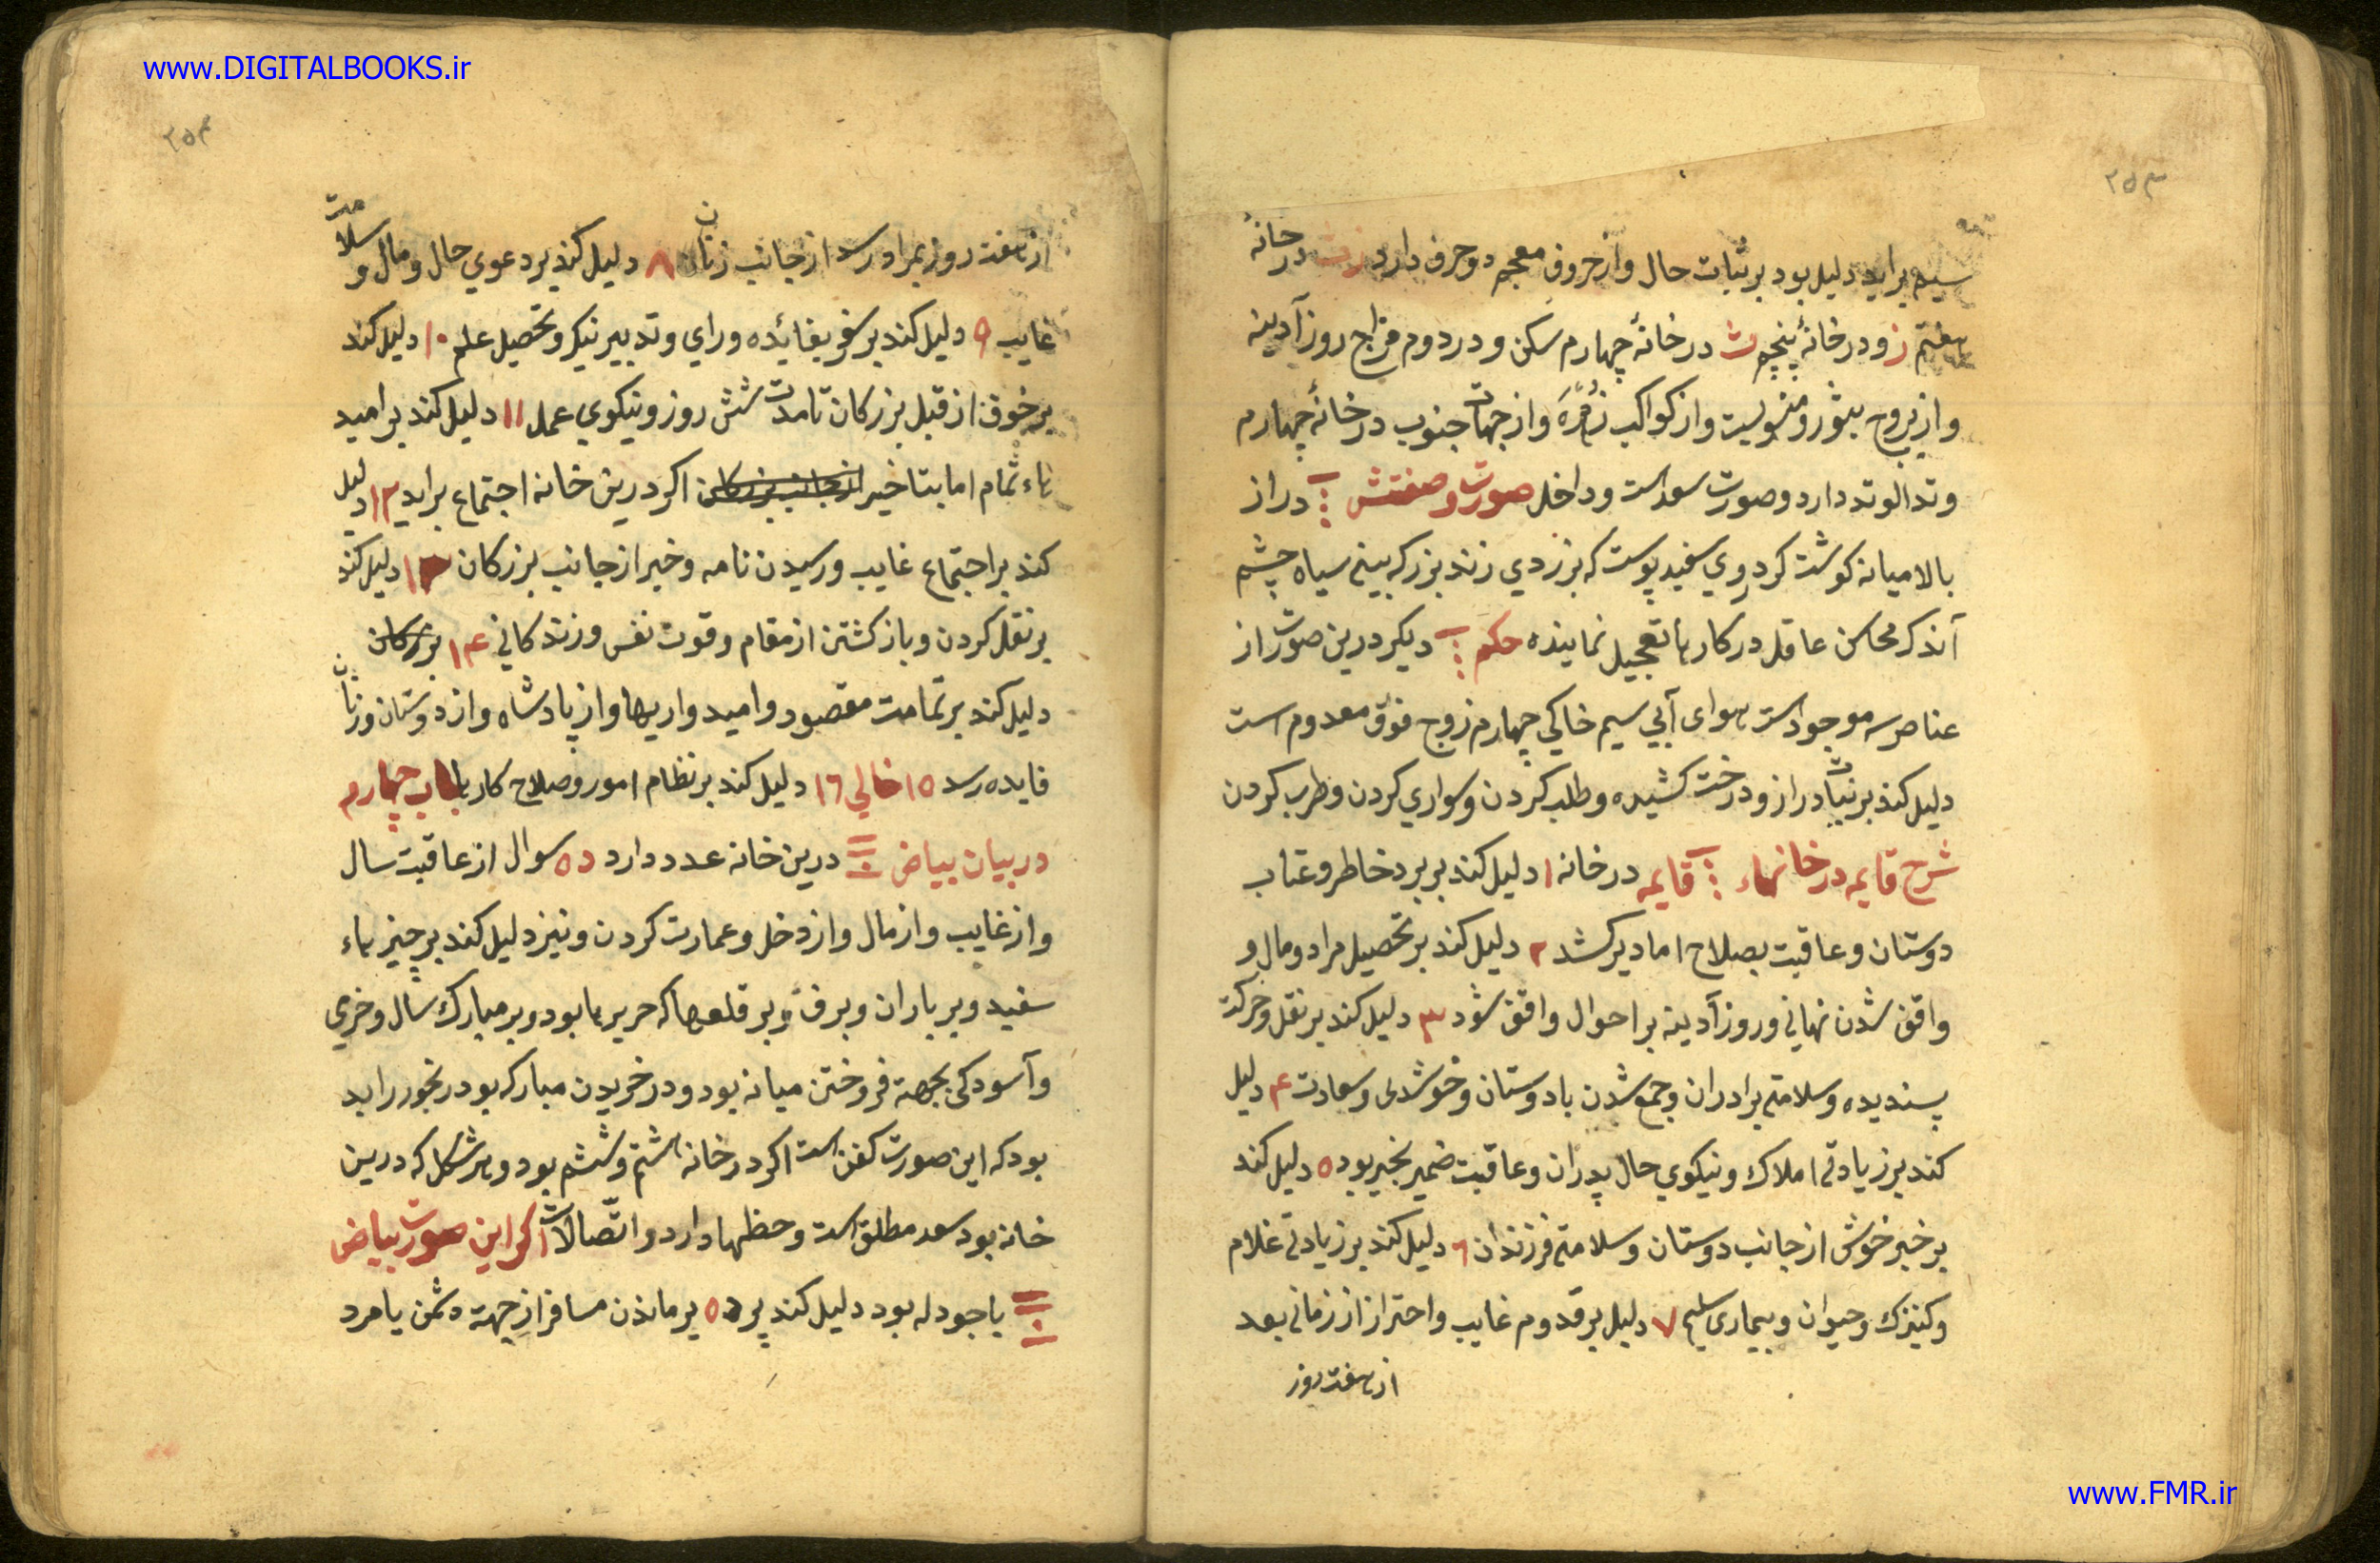 www.DIGITALBOOKS.ir
۲۵۳
سیم براید دلیل بود بر ثبات حال و از حروف معجم دو حرف دارد ز ث در خانهٔ
هفتم ز و در خانهٔ پنجم ث در خانهٔ چهارم سکن و در دوم مزاج روز آدینه
و از بروج بیثور و منسوبست و از کواکب زهره و از جهات جنوب در خانهٔ چهارم
وتد الوتد دارد و صورت سعد است و داخل صورت و صفتش دراز
بالا میانه کوشت کرد روی سفید پوست که بزردی زند بزرک بینی سیاه چشم
اندک محاسن عاقل در کارها تعجیل نماینده حکم دیکر درین صورت از
عناصر سه موجود است هوای آبی سیم خاکی چهارم زوج فوق معدوم است
دلیل کند بر نبات دراز و درخت کشیده و طلب کردن و سواری کردن و طرب کردن
شرح قایمه در خانهاء قایمه در خانه ۱ دلیل کند بر برد خاطر و عتاب
دوستان و عاقبت بصلاح اما دیر کشد ۲ دلیل کند بر تحصیل مراد و مال و
واقف شدن نهانی و روز آدینه بر احوال واقف شود ۳ دلیل کند بر نقل و حرکت
پسندیده و سلامتی برادران و جمع شدن با دوستان و خوشدلی و سعادت ۴ دلیل
کند بر زیادتی املاک و نیکوی حال پدران و عاقبت ضمیر بخیر بود ۵ دلیل کند
بر خبر خوش از جانب دوستان و سلامتی فرزندان ۶ دلیل کند بر زیادتی غلام
و کنیزک و حیوان و بیماری سلیم ۷ دلیل بر قدوم غایب و احتراز از زمانی بعد
از هفت روز
۲۵۴
از هفت روز بمراد رسد از جانب زنان ۸ دلیل کند بر دعوی حال و مال و سلامت
غایب ۹ دلیل کند بر سفر بفائده و رای و تدبیر نیکو و تحصیل علم ۱۰ دلیل کند
بر خوف از قبل بزرکان تا مدت شش روز و نیکوی عمل ۱۱ دلیل کند بر امید
هاء تمام اما بتاخیر از جانب بزرکان اکر درین خانه اجتماع براید ۱۲ دلیل
کند بر اجتماع غایب و رسیدن نامه و خیر از جانب بزرکان ۱۳ دلیل کند
بر نقل کردن و باز کشتن از مقام و قوت نفس و زندکانی ۱۴ بزرکان
دلیل کند بر تمامت مقصود و امیدواریها و از پادشاه و از دوستان و زنان
فایده رسد ۱۵ خالی ۱۶ دلیل کند بر نظام امور و صلاح کارها باب چهارم
در بیان بیاض درین خانه عدد دارد ده سوال از عاقبت سال
و از غایب و از مال و از دخل و عمارت کردن و نیز دلیل کند بر چیزهاء
سفید و بر باران و برف و بر قلعها که حریر ها بود و بر مبارک سال و خرمی
و آسودکی بجهة فروختن میانه بود و در خریدن مبارک بود رنجور را بد
بود که این صورت کفن است اکر در خانه هشتم و ششم بود و هر شکل که درین
خانه بود سعد مطلق است و حظها دارد و اتصالات اکر این صورت بیاض
با جودله بود دلیل کند بر ده بر ماندن مسافر از جهة دشمن یا مرد
www.FMR.ir